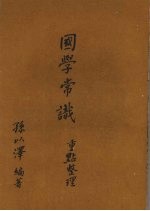 國學常識
重點整理
孫以澤 編著